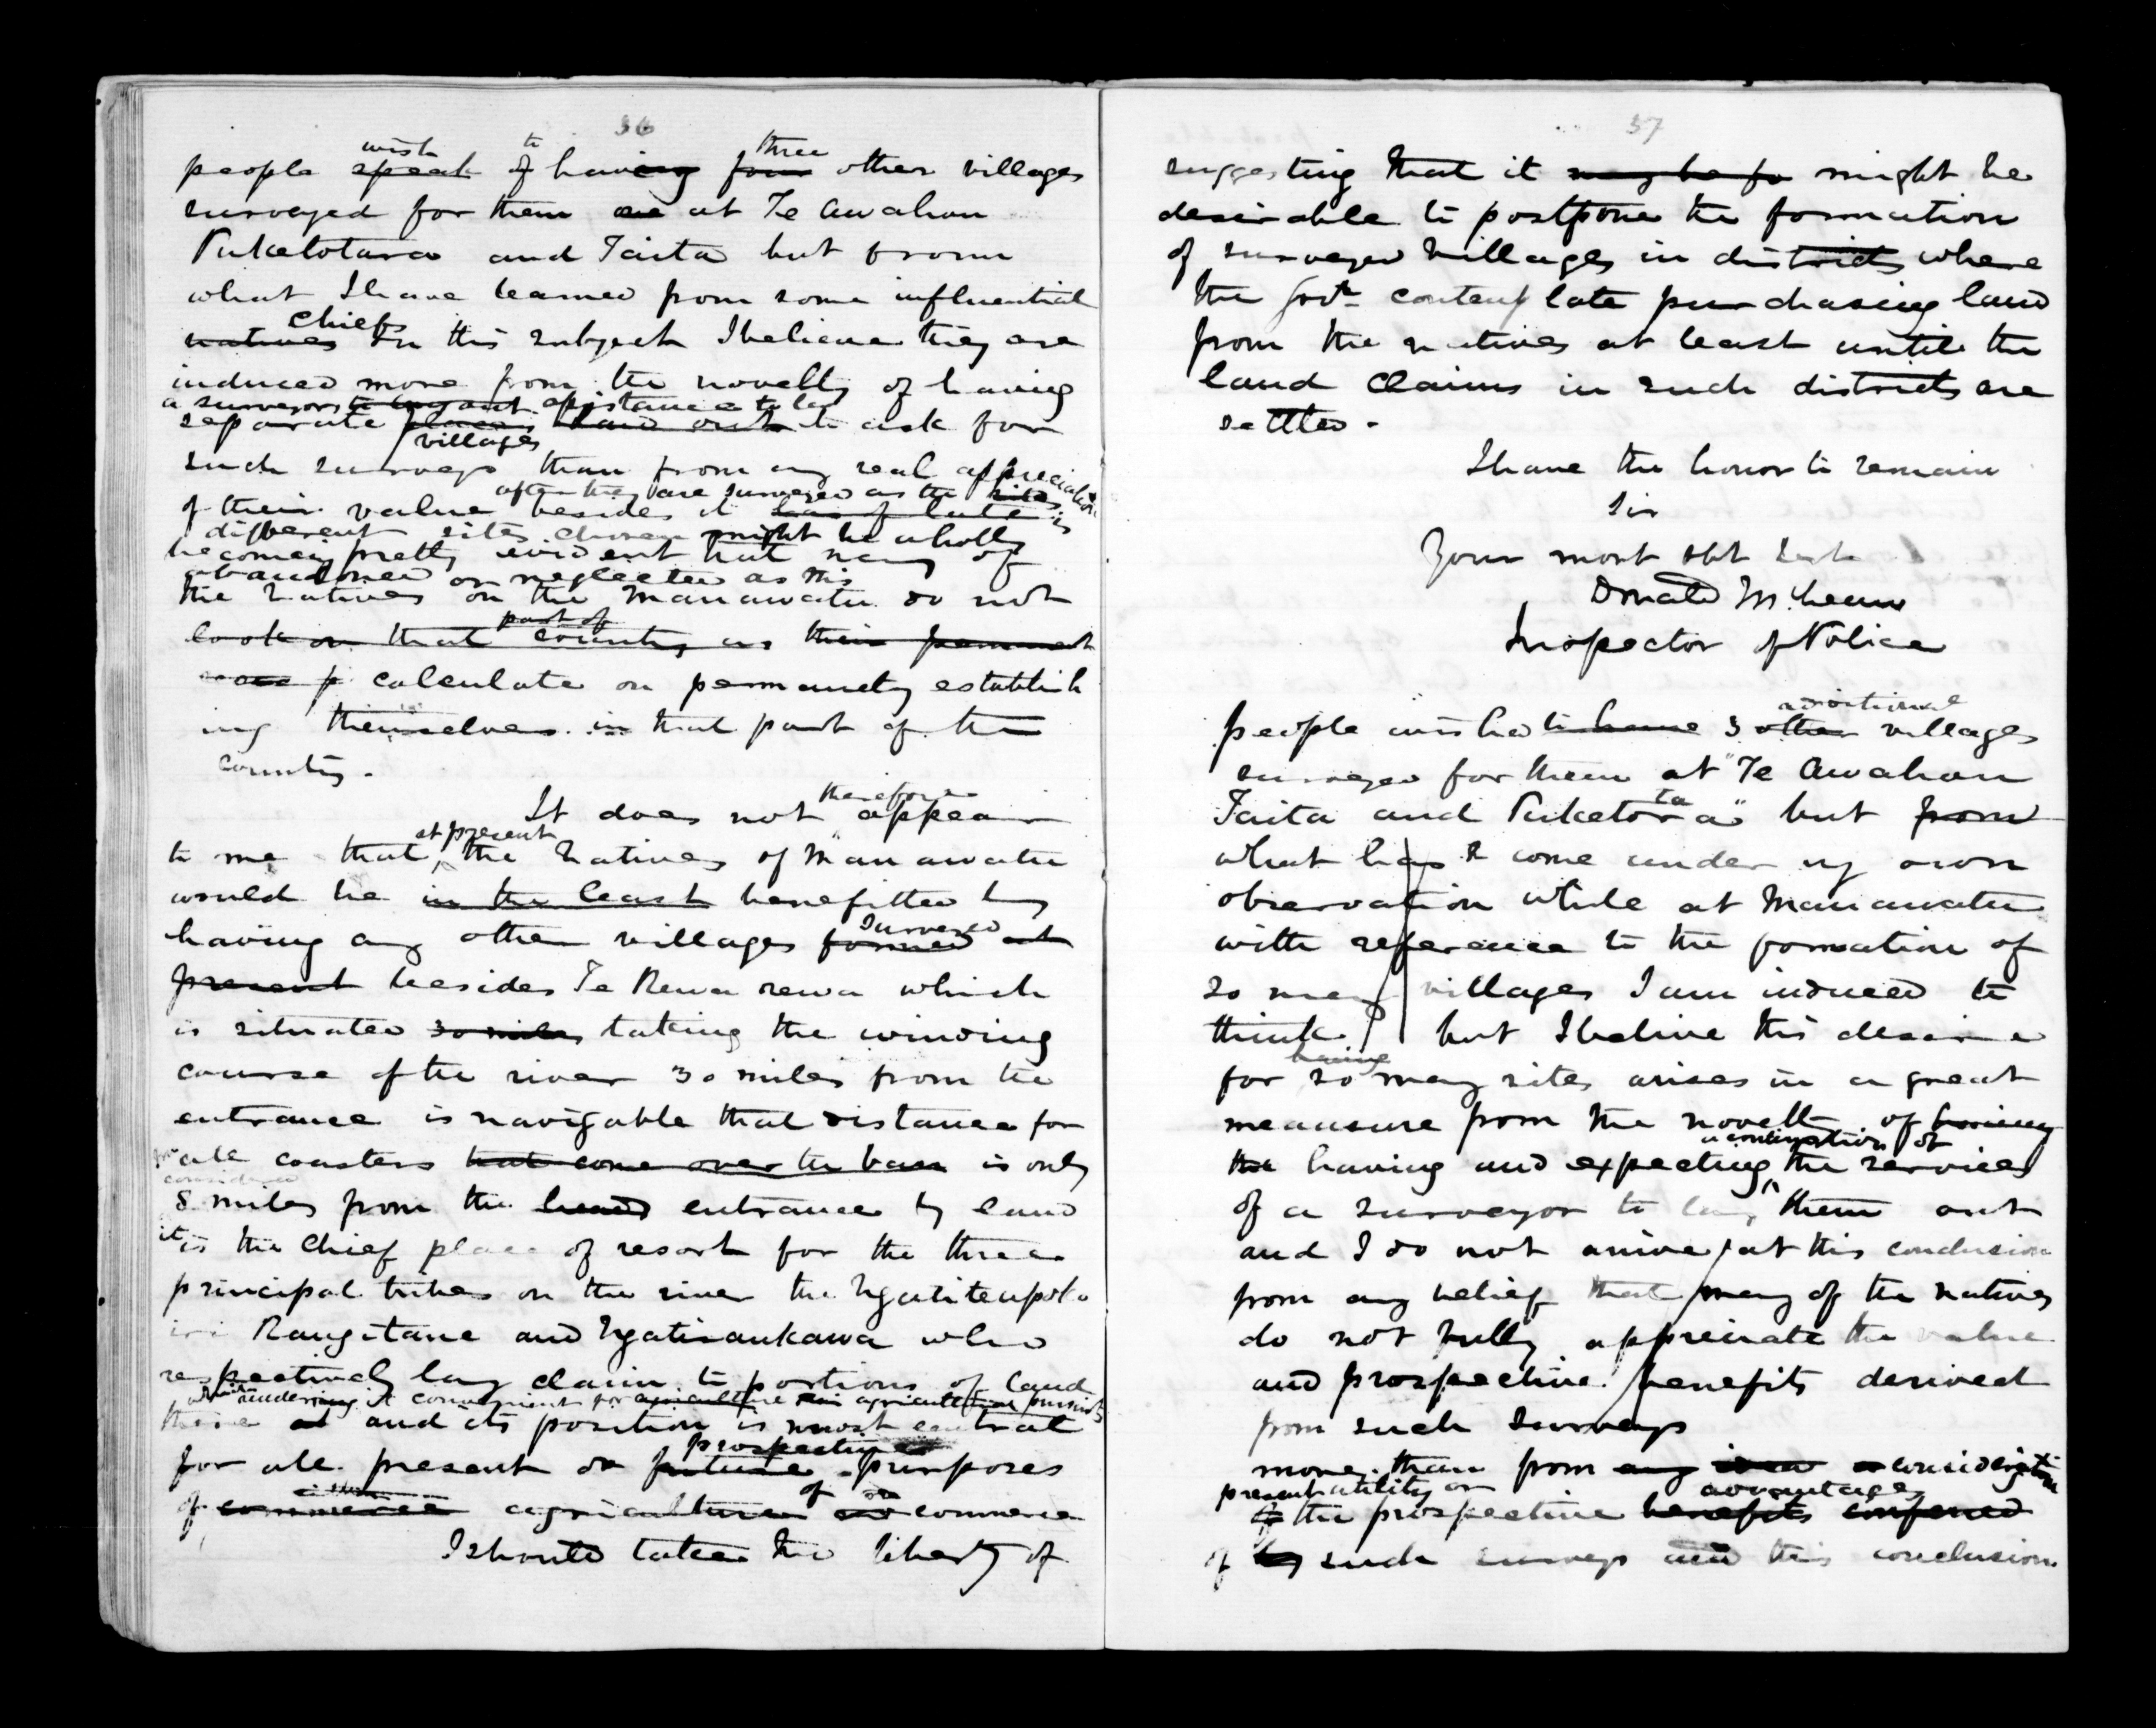 36
wish to three
people speak of having four other villages
surveyed for them are at Te Awahou
Puketotara and Taita but from
what I have learned from some influential
chiefs
natives on this subject I believe they are
induced more from the novelty of having
a surveyors to lay out assistance to lay
separate places laid out to ask for
villages
such surveys than from any real appreciation
after they are surveyed as the sites
of their value besides it has of late is
different sites chosen might be wholly
becoming pretty evident that many of
abandoned or neglected as this
the natives on the Manawatu do not
part of
look on that country as their permanent
calculate on permanently establish
ing themselves in that part of the
country.
therefore
It does not appear
at present
to me that, the natives of Manawatu
would be in the least benefitted by
surveyed
having any other villages formed at
present besides Te Rewa rewa which
is situated 30 miles taking the winding
course of the river 30 miles from the
entrance is navigable that distance for
all coasters that come over the bar is only
considered
8 miles from the head entrance by land
it is the Chief place of resort for the three
principal tribes on the river the Ngatiteupoko
iri Rangitane and Ngatiraukawa who
respectively lay claim to portions of land
rendering it convenient for agriculture agricultural pursuits
there at and its position is most central
prospective
for all present or future purposes
of commerce agriculture or commerce
I should take the liberty of
37
suggesting that it may be fo might be
desirable to postpone the formation
of surveyed villages in districts where
the Govt contemplate purchasing land
from the natives at least until the
land claims in such districts are
settled.
I have the honor to remain
Sir
Your most obt Servt
Donald McLean
Inspector of Police
additional
people wished to have 3 other villages
surveyed for them at "Te Awahou
ta
Taita and Puketora" but from
what has come under my own
observation while at Manawatu
with reference to the formation of
so many villages I am induced to
think but I believe this desire
having
for so many sites arises in a great
measure from the novelty of having
a continuation of
the having and expecting the services
of a surveyor to lay them out
and I do not arrive at this conclusion
from any belief that many of the natives
do not fully appreciate the value
and prospective benefits derived
from such surveys
more than from any idea or consideration
present utility or advantages
of the prospective benefits conferred
of by such surveys and this conclusion